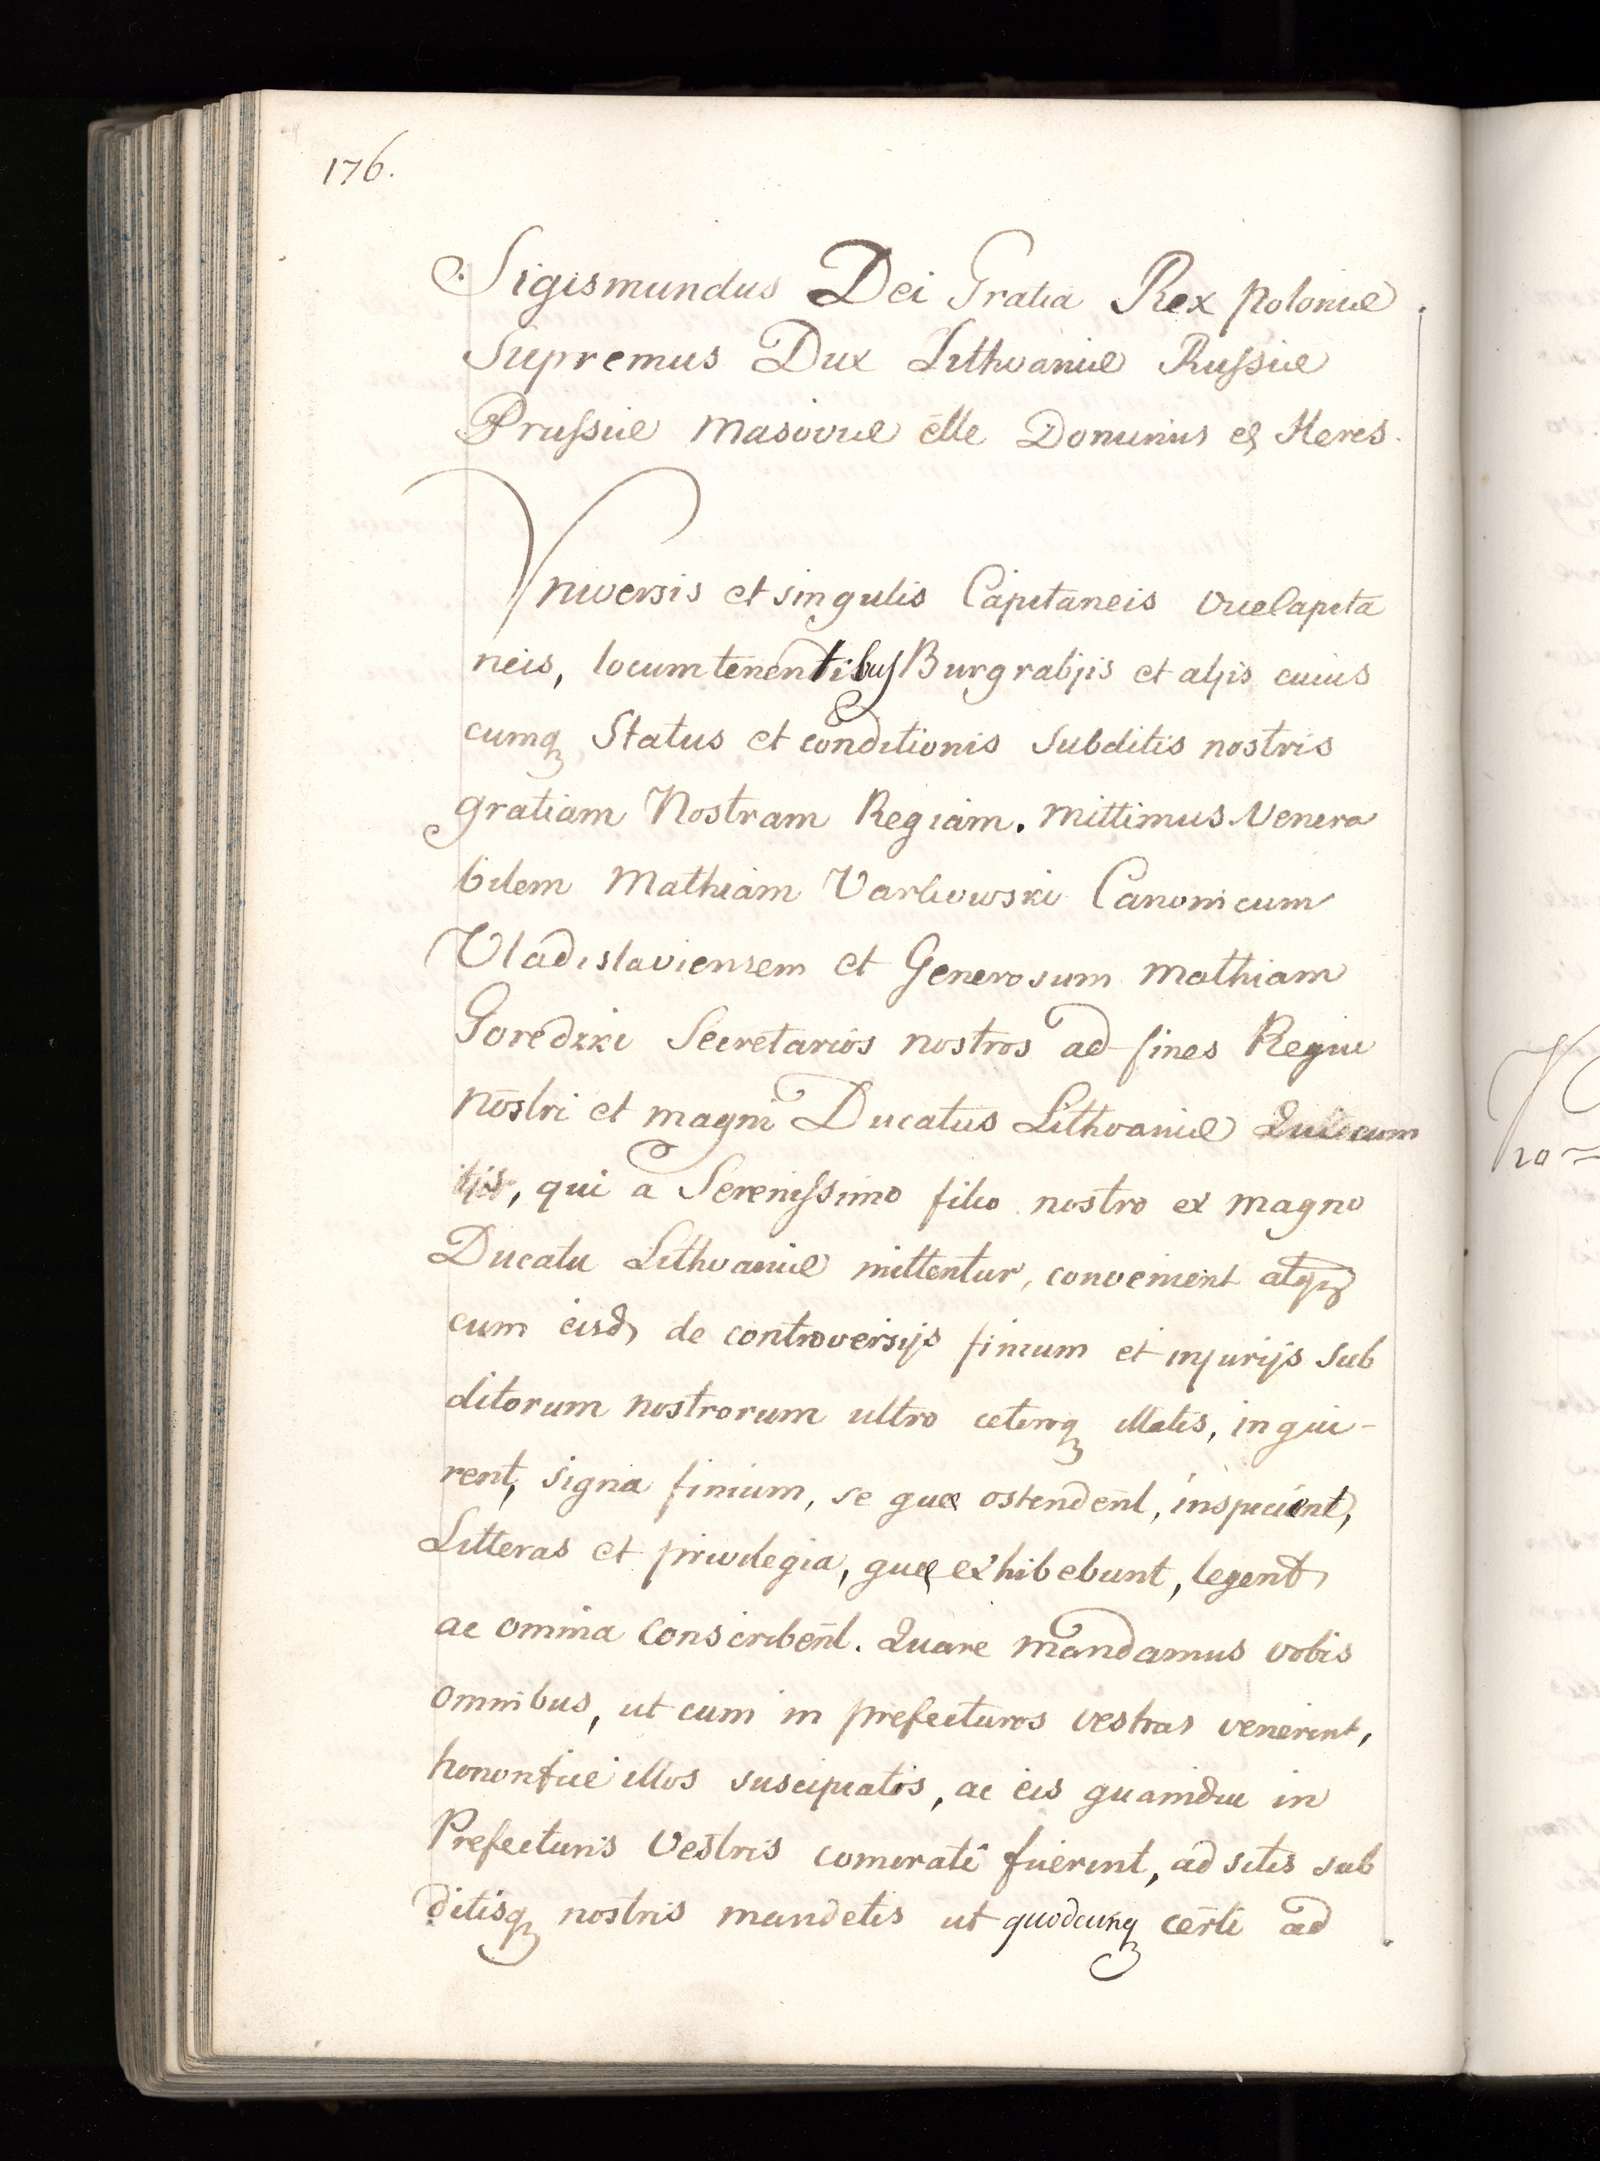 176.
Sigismundus Dei Gratia Rex Poloniæ
Supremus Dux Lithvaniæ Russiæ
Prussiæ Masoviæ ēttc Dominus et Heres.
Vniversis et singulis Capitaneis Vicecapita
neis, locumtenentibus Burgrabijs et alijs cuius
cumq Status et conditionis subditis nostris
gratiam Nostram Regiam. Mittimus Venera
bilem Mathiam Varlivowski Canonicum
Vladislaviensem et Generosum Mathiam
Goredzki Secretarios nostros ad fines Regni
nōstri et magni Ducatus Lithvaniæ Quicum
ijs, qui a Serenissimo filio nostro ex magno
Ducatu Lithvaniæ mittentur, convenient atq
cum eisd de controversijs finium et injurijs sub
ditorum nostrorum ultro citroq illatis, inqui-
rent, signa finium, se quæ ostendēnt, inspicient,
Litteras et privilegia, quæ exhibebunt, legent
ac omnia conscribēnt. Quare mandamus vobis
omnibus, ut cum in prefecturas vestras venerint,
honorifice illos suscipiatis, ac eis quamdiu in
Prefecturis Vestris comorati fuerint, adsitis sub
ditisq nostris mandetis ut quodcunq certi ad